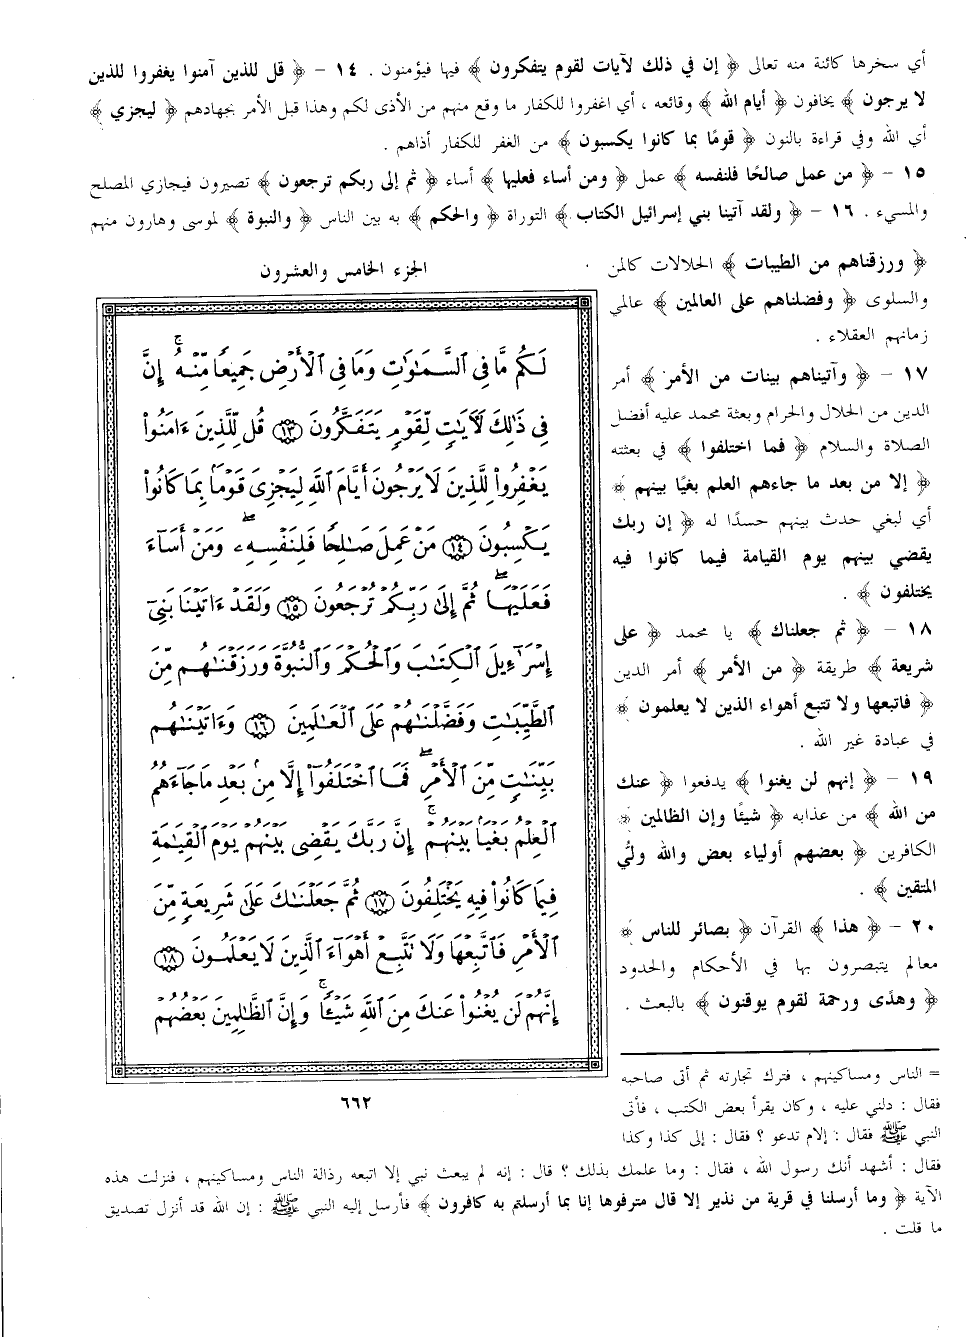 أي سخرها كائنة منه تعالى ﴿ إن في ذلك لآيات لقوم يتفكرون ﴾ فيها فيؤمنون . ١٤ - ﴿ قل للذين آمنوا يغفروا للذين
لا يرجون ﴾ يخافون ﴿ أيام الله ﴾ وقائعه ، أي اغفروا للكفار ما وقع منهم من الأذى لكم وهذا قبل الأمر بجهادهم ﴿ ليجزي ﴾
أي الله وفي قراءة بالنون ﴿ قومًا بما كانوا يكسبون ﴾ من الغفر للكفار أذاهم .
١٥ - ﴿ من عمل صالحًا فلنفسه ﴾ عمل ﴿ ومن أساء فعليها ﴾ أساء ﴿ ثم إلى ربكم ترجعون ﴾ تصيرون فيجازي المصلح
والمسيء . ١٦ - ﴿ ولقد آتينا بني إسرائيل الكتاب ﴾ التوراة ﴿ والحكم ﴾ به بين الناس ﴿ والنبوة ﴾ لموسى وهارون منهم
﴿ ورزقناهم من الطيبات ﴾ الحلالات كالمن
والسلوى ﴿ وفضلناهم على العالمين ﴾ عالمي
زمانهم العقلاء .
١٧ - ﴿ وآتيناهم بينات من الأمر ﴾ أمر
الدين من الحلال والحرام وبعثة محمد عليه أفضل
الصلاة والسلام ﴿ فما اختلفوا ﴾ في بعثته
﴿ إلا من بعد ما جاءهم العلم بغيًا بينهم ﴾
أي لبغي حدث بينهم حسدًا له ﴿ إن ربك
يقضي بينهم يوم القيامة فيما كانوا فيه
يختلفون ﴾ .
١٨ - ﴿ ثم جعلناك ﴾ يا محمد ﴿ على
شريعة ﴾ طريقة ﴿ من الأمر ﴾ أمر الدين
﴿ فاتبعها ولا تتبع أهواء الذين لا يعلمون ﴾
في عبادة غير الله .
١٩ - ﴿ إنهم لن يغنوا ﴾ يدفعوا ﴿ عنك
من الله ﴾ من عذابه ﴿ شيئًا وإن الظالمين ﴾
الكافرين ﴿ بعضهم أولياء بعض والله وليُّ
المتقين ﴾ .
٢٠ - ﴿ هذا ﴾ القرآن ﴿ بصائر للناس ﴾
معالم يتبصرون بها في الأحكام والحدود
﴿ وهدًى ورحمة لقوم يوقنون ﴾ بالبعث .
الجزء الخامس والعشرون
لَكُم مَّا فِي ٱلسَّمَٰوَٰتِ وَمَا فِي ٱلْأَرْضِ جَمِيعًا مِّنْهُ ۚ إِنَّ
فِي ذَٰلِكَ لَآيَٰتٍ لِّقَوْمٍ يَتَفَكَّرُونَ ١٣ قُل لِّلَّذِينَ ءَامَنُواْ
يَغْفِرُواْ لِلَّذِينَ لَا يَرْجُونَ أَيَّامَ ٱللَّهِ لِيَجْزِيَ قَوْمًۢا بِمَا كَانُواْ
يَكْسِبُونَ ١٤ مَنْ عَمِلَ صَٰلِحًا فَلِنَفْسِهِۦ ۖ وَمَنْ أَسَآءَ
فَعَلَيْهَا ۖ ثُمَّ إِلَىٰ رَبِّكُمْ تُرْجَعُونَ ١٥ وَلَقَدْ ءَاتَيْنَا بَنِيٓ
إِسْرَٰٓءِيلَ ٱلْكِتَٰبَ وَٱلْحُكْمَ وَٱلنُّبُوَّةَ وَرَزَقْنَٰهُم مِّنَ
ٱلطَّيِّبَٰتِ وَفَضَّلْنَٰهُمْ عَلَى ٱلْعَٰلَمِينَ ١٦ وَءَاتَيْنَٰهُم
بَيِّنَٰتٍ مِّنَ ٱلْأَمْرِ ۖ فَمَا ٱخْتَلَفُوٓاْ إِلَّا مِنۢ بَعْدِ مَا جَآءَهُمُ
ٱلْعِلْمُ بَغْيًۢا بَيْنَهُمْ ۚ إِنَّ رَبَّكَ يَقْضِي بَيْنَهُمْ يَوْمَ ٱلْقِيَٰمَةِ
فِيمَا كَانُواْ فِيهِ يَخْتَلِفُونَ ١٧ ثُمَّ جَعَلْنَٰكَ عَلَىٰ شَرِيعَةٍ مِّنَ
ٱلْأَمْرِ فَٱتَّبِعْهَا وَلَا تَتَّبِعْ أَهْوَآءَ ٱلَّذِينَ لَا يَعْلَمُونَ ١٨
إِنَّهُمْ لَن يُغْنُواْ عَنكَ مِنَ ٱللَّهِ شَيْـًٔا ۚ وَإِنَّ ٱلظَّٰلِمِينَ بَعْضُهُمْ
٦٦٢
= الناس ومساكينهم ، فترك تجارته ثم أتى صاحبه
فقال : دلني عليه ، وكان يقرأ بعض الكتب ، فأتى
النبي ﷺ فقال : إلام تدعو ؟ فقال : إلى كذا وكذا
فقال : أشهد أنك رسول الله ، فقال : وما علمك بذلك ؟ قال : إنه لم يبعث نبي إلا اتبعه رذالة الناس ومساكينهم ، فنزلت هذه
الآية ﴿ وما أرسلنا في قرية من نذير إلا قال مترفوها إنا بما أرسلتم به كافرون ﴾ فأرسل إليه النبي ﷺ : إن الله قد أنزل تصديق
ما قلت .